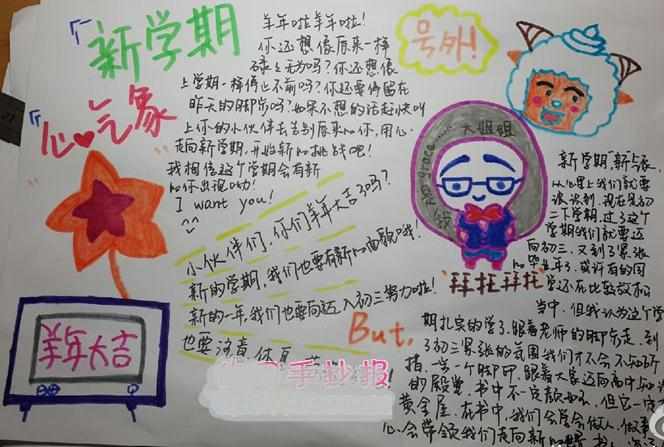 新学期
心气象
羊年啦羊年啦!
你还想像原来一样
碌碌无为吗?你还想像
上学期一样停止不前吗?你还要停留在
昨天的脚步吗?如果不想的话赶快叫
上你的小伙伴去告别原来的你,用心
走向新学期,开始新的挑战吧!
我相信这个学期会有新
的你出现呦!
I want you!
号外!
大姐姐
我
拜托拜托
羊年大吉
小伙伴们,你们羊年大吉了吗?
新的学期,我们也要有新的面貌哦!
新的一年,我们也要向迈入初三努力啦!
也要注意体育
But,
手抄报
新学期,新气象,
从心里上我们就要
意识到,现在是初
二下学期,过了这个
学期我们就要迈
向初三,又到了紧张
的毕业年了,或许有的同
学还在比较放松
当中,但我认为这个学
期扎实的学了,跟着老师的脚步走,到
了初三紧张的氛围我们才不会不知所
措,一步一个脚印,跟着大家迈向高中知识
的殿堂,书中不一定颜如玉,但它一定有
黄金屋,在书中,我们会学会做人,做事
心会带领我们走向新的